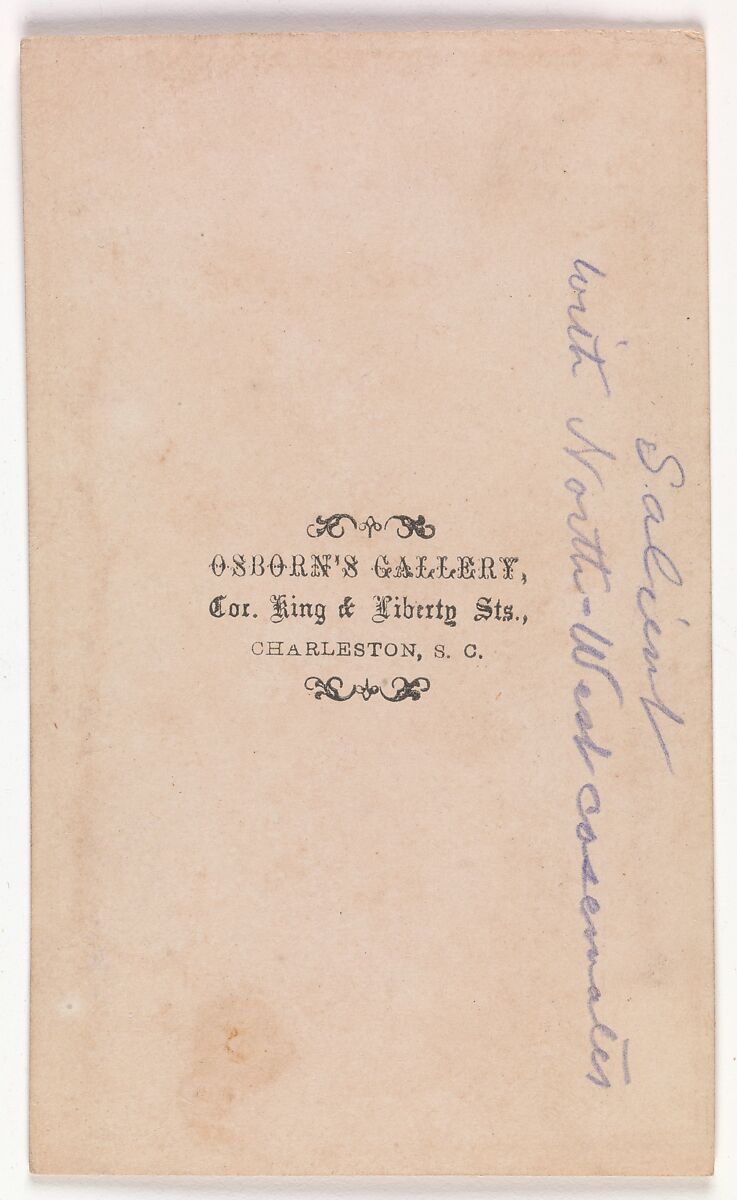 OSBORN'S GALLERY,
Cor. King & Liberty Sts.,
CHARLESTON, S. C.
Salient
with North-West casemates